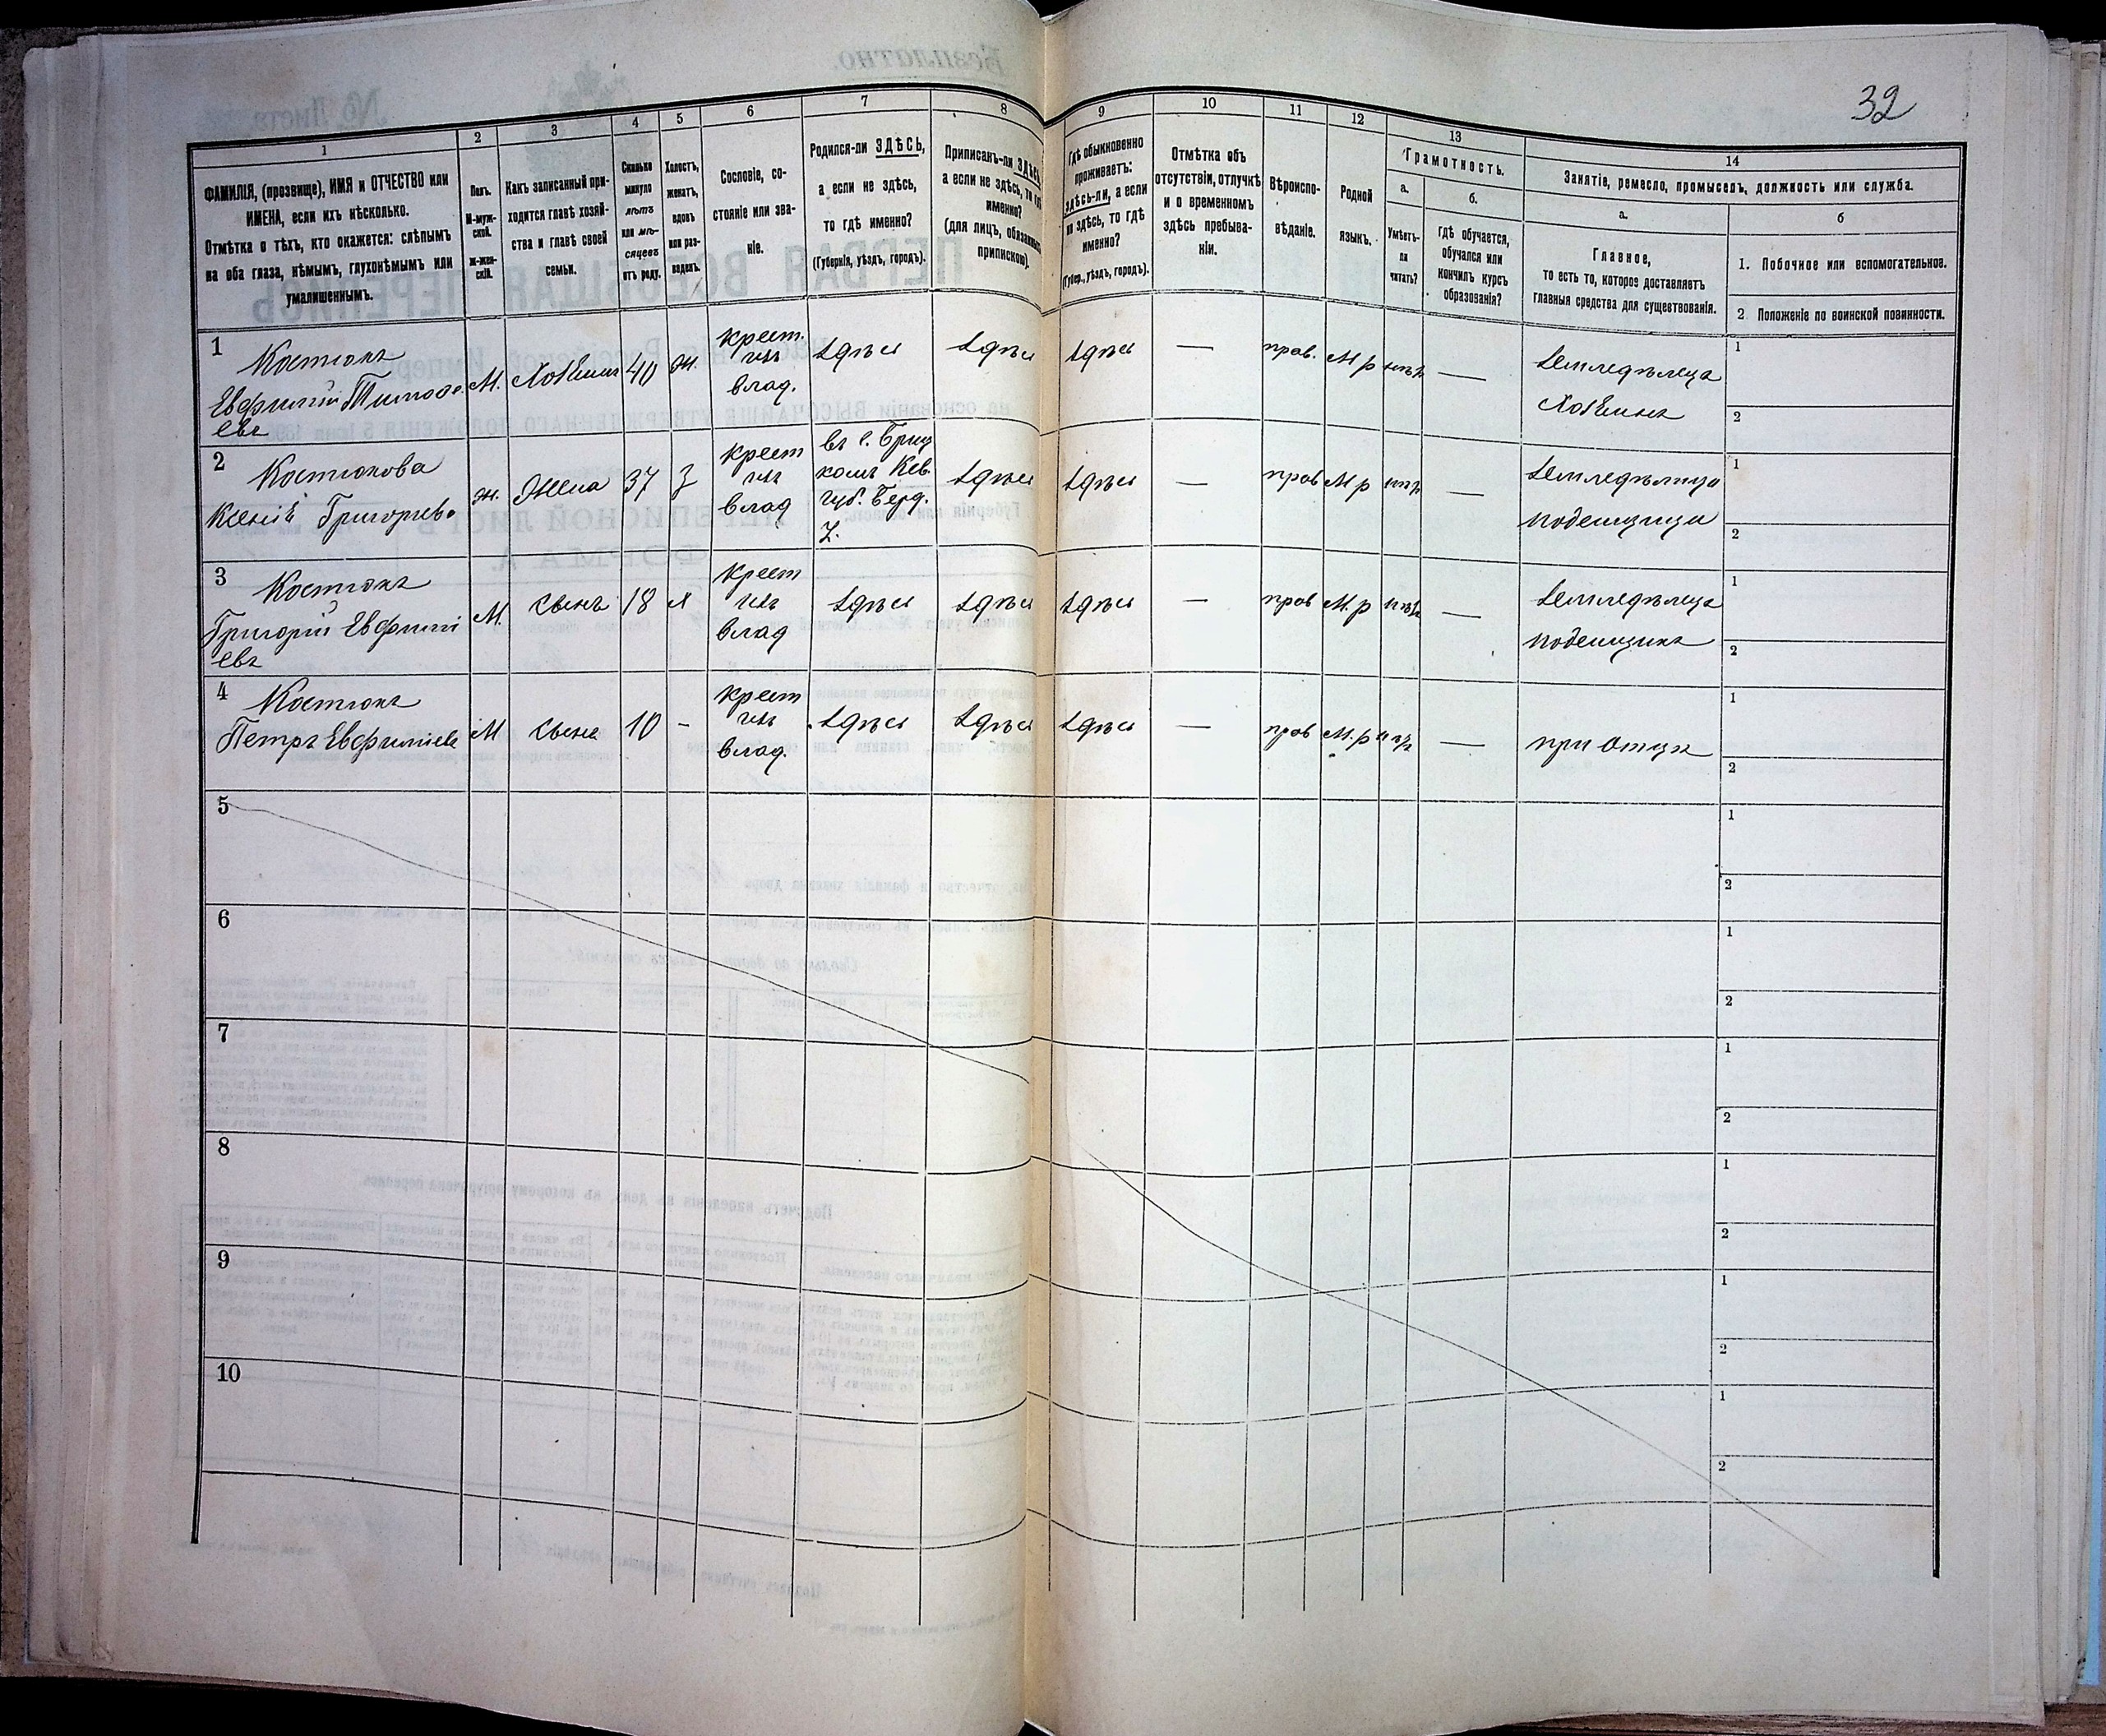 32
1
2
3
4
5
6
7
8
9
10
11
12
13
14
ФАМИЛІЯ, (прозвище), ИМЯ и ОТЧЕСТВО или
ИМЕНА, если ихъ нѣсколько.
Отмѣтка о тѣхъ, кто окажется: слѣпымъ
на оба глаза, нѣмымъ, глухонѣмымъ или
умалишеннымъ.
Полъ.
М-муж-
ской.
ж-жен-
скій.
Какъ записанный при-
ходится главѣ хозяй-
ства и главѣ своей
семьи.
Сколько
минуло
лѣтъ
или мѣ-
сяцевъ
отъ роду.
Холостъ,
женатъ,
вдовъ
или раз-
веденъ.
Сословіе, со-
стояніе или зва-
ніе.
Родился-ли ЗДѢСЬ,
а если не здѣсь,
то гдѣ именно?
(Губернія, уѣздъ, городъ).
Приписанъ-ли ЗДѢСЬ,
а если не здѣсь, то гдѣ
именно?
(для лицъ, обязанныхъ
припискою).
Гдѣ обыкновенно
проживаетъ:
здѣсь-ли, а если
не здѣсь, то гдѣ
именно?
(Губер., уѣздъ, городъ).
Отмѣтка объ
отсутствіи, отлучкѣ
и о временномъ
здѣсь пребыва-
ніи.
Вѣроиспо-
вѣданіе.
Родной
языкъ.
Грамотность.
а.
Умѣетъ-
ли
читать?
б.
гдѣ обучается,
обучался или
кончилъ курсъ
образованія?
Занятіе, ремесло, промыселъ, должность или служба.
а.
Главное,
то есть то, которое доставляетъ
главныя средства для существованія.
б
1. Побочное или вспомогательное.
2 Положеніе по воинской повинности.
1
Костюкъ
Евфимій Тимофе
евъ
М.
Хозяинъ
40
ж.
крест.
изъ
влад.
здѣсь
здѣсь
здѣсь
—
прав.
М р
нѣтъ
—
земледѣлецъ
Хозяинъ
1
2
2
Костюкова
Ксенія Григорьев
ж.
Жена
37
З
крест
изъ
влад
въ с. Бриц
комъ Кев.
губ. Берд.
У.
здѣсь
здѣсь
—
прав
М р
нѣтъ
—
поденщица
1
2
3
Костюкъ
Григорій Евфимі
евъ
М.
сынъ
18
х
крест
изъ
влад
здѣсь
здѣсь
здѣсь
—
прав
М. р
нѣтъ
—
земледѣлецъ
поденщикъ
1
2
4
Костюкъ
Петръ Евфиміевъ
М
сынъ
10
-
крест
изъ
влад.
здѣсь
здѣсь
здѣсь
—
прав
М. р
нѣтъ
—
при отцѣ
1
2
5
1
2
6
1
2
7
1
2
8
1
2
9
1
2
10
1
2